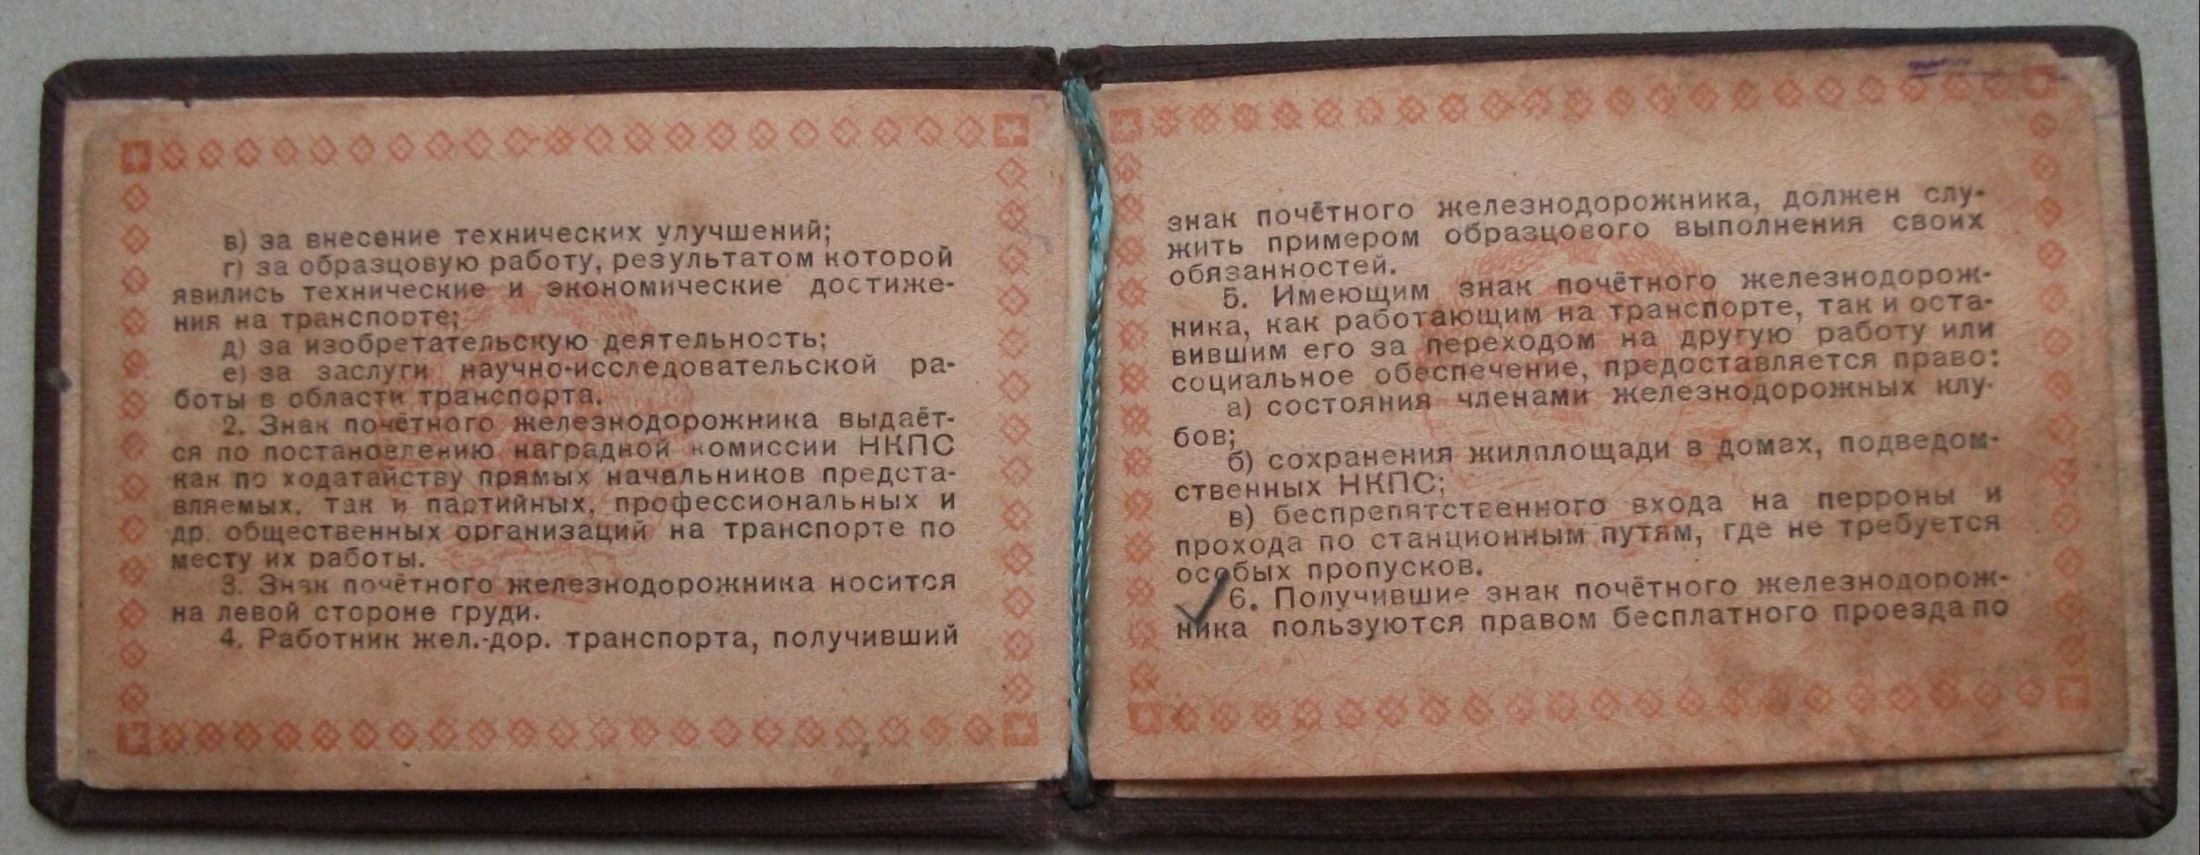 в) за внесение технических улучшений;
г) за образцовую работу, результатом которой
явились технические и экономические достиже-
ния на транспорте;
д) за изобретательскую деятельность;
е) за заслуги научно-исследовательской ра-
боты в области транспорта.
2. Знак почётного железнодорожника выдаёт-
ся по постановлению наградной комиссии НКПС
как по ходатайству прямых начальников предста-
вляемых, так и партийных, профессиональных и
др. общественных организаций на транспорте по
месту их работы.
3. Знак почётного железнодорожника носится
на левой стороне груди.
4. Работник жел.-дор. транспорта, получивший
знак почётного железнодорожника, должен слу-
жить примером образцового выполнения своих
обязанностей.
5. Имеющим знак почётного железнодорож-
ника, как работающим на транспорте, так и оста-
вившим его за переходом на другую работу или
социальное обеспечение, предоставляется право:
а) состояния членами железнодорожных клу-
бов;
б) сохранения жилплощади в домах, подведом-
ственных НКПС;
в) беспрепятственного входа на перроны и
прохода по станционным путям, где не требуется
особых пропусков.
6. Получившие знак почётного железнодорож-
ника пользуются правом бесплатного проезда по